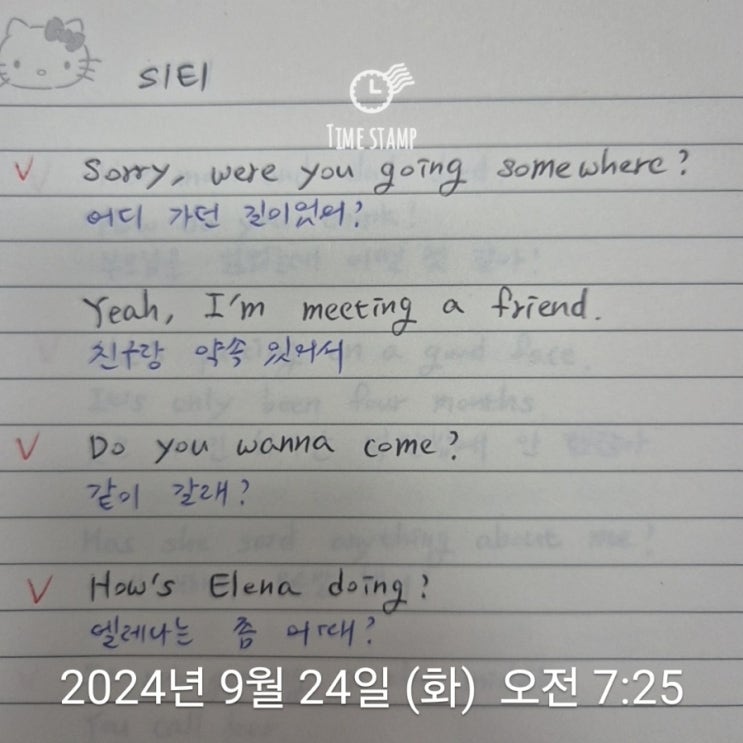 S1E1
TIME STAMP
Sorry, were you going somewhere?
어디 가던 길이었어?
Yeah, I'm meeting a friend.
친구랑 약속 있어서
Do you wanna come?
같이 갈래?
How's Elena doing?
엘레나는 좀 어때?
2024년 9월 24일 (화) 오전 7:25